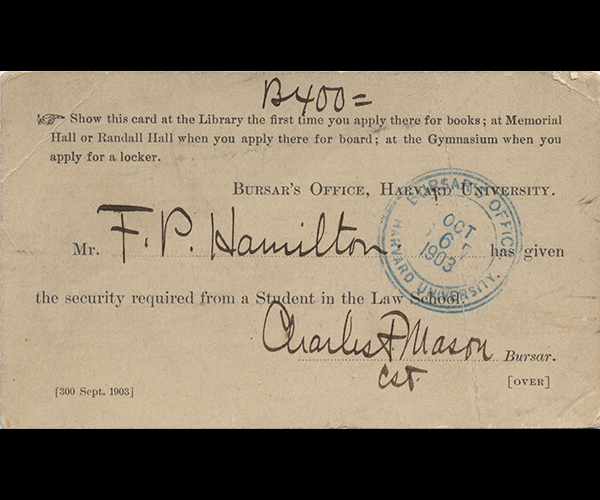 B400=
Show this card at the Library the first time you apply there for books; at Memorial
Hall or Randall Hall when you apply there for board; at the Gymnasium when you
apply for a locker.
BURSAR'S OFFICE, HARVARD UNIVERSITY.
BURSAR'S OFFICE
HARVARD UNIVERSITY.
OCT
6
1903
Mr. F. P. Hamilton. has given
the security required from a Student in the Law School.
Charles F. Mason Bursar.
CST.
[OVER]
[300 Sept. 1903]